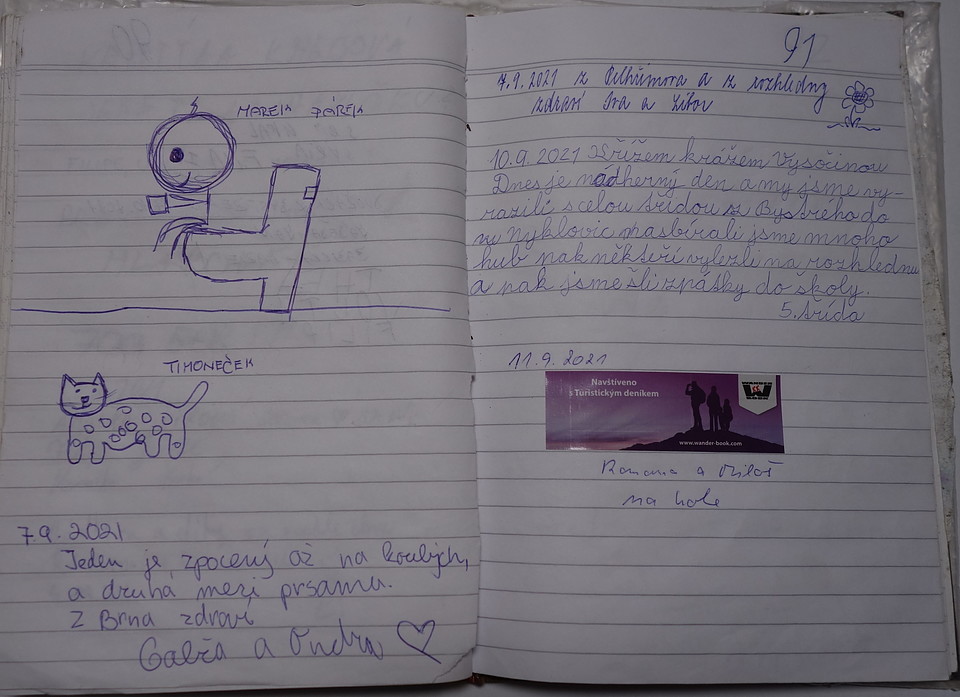 MAREK PÁREK
TIMONEČEK
7.9.2021
Jeden je zpocený až na koulých,
a druhá mezi prsama.
Z Brna zdraví
Gabča a Ondra
91
7.9.2021 z Pelhřimova a z rozhledny
zdraví Iva a Libor
10.9.2021 Křížem krážem Vysočinou
Dnes je nádherný den a my jsme vy-
razili s celou třídou z Bystrého do
Nyklovic nasbírali jsme mnoho
hub pak někteří vylezli na rozhlednu
a pak jsme šli zpátky do školy.
5. třída
11.9.2021
Navštíveno
s Turistickým deníkem
www.wander-book.com
Romana a Miloš
na kole